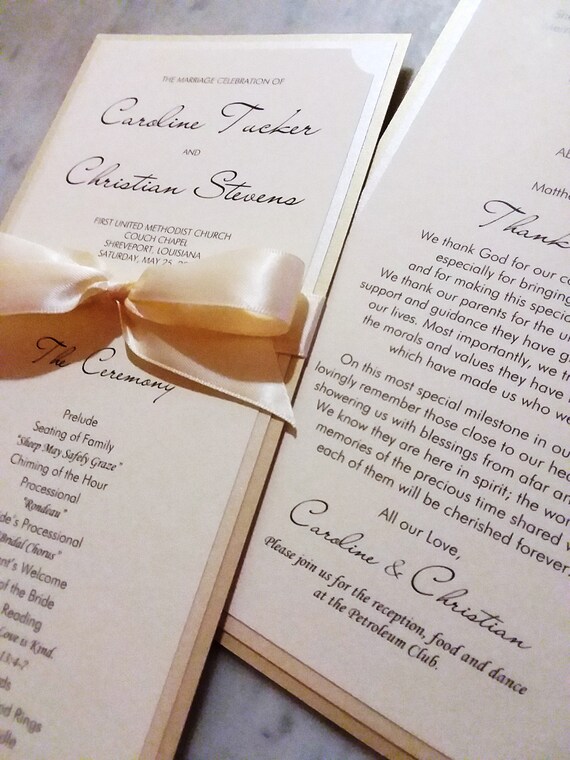 THE MARRIAGE CELEBRATION OF
Caroline Tucker
AND
Christian Stevens
FIRST UNITED METHODIST CHURCH
COUCH CHAPEL
SHREVEPORT, LOUISIANA
SATURDAY, MAY 25,
The Ceremony
Prelude
Seating of Family
"Sheep May Safely Graze"
Chiming of the Hour
Processional
"Rondeau"
Processional
Bridal Chorus"
Welcome
of the Bride
Reading
Love is Kind.
13:4-7
and Rings
Thank
We thank God for our
especially for bringing
and for making this special
We thank our parents for the
support and guidance they have
our lives. Most importantly, we
the morals and values they have
which have made us who we
On this most special milestone in our
lovingly remember those close to our
showering us with blessings from afar
We know they are here in spirit; the
memories of the precious time shared
each of them will be cherished forever.
All our Love,
Caroline & Christian
Please join us for the reception, food and dance
at the Petroleum Club.